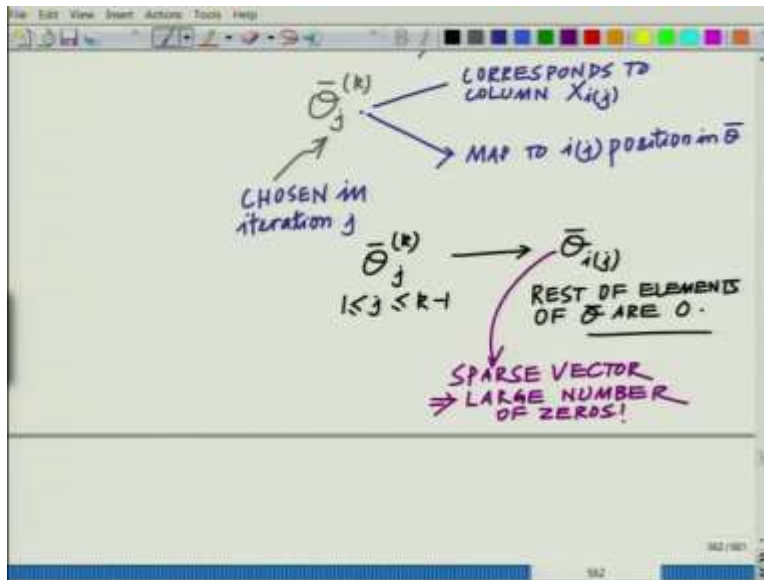 File Edit View Insert Actions Tools Help
CORRESPONDS TO
COLUMN X_{i(j)}
\bar{Θ}_j^{(k)}
MAP TO i(j) position in \bar{Θ}
CHOSEN in
iteration j
\bar{Θ}_j^{(k)} → \bar{Θ}_{i(j)}
1 ≤ j ≤ k-1
REST OF ELEMENTS
OF \bar{Θ} ARE 0.
SPARSE VECTOR
⇒ LARGE NUMBER
OF ZEROS!
562